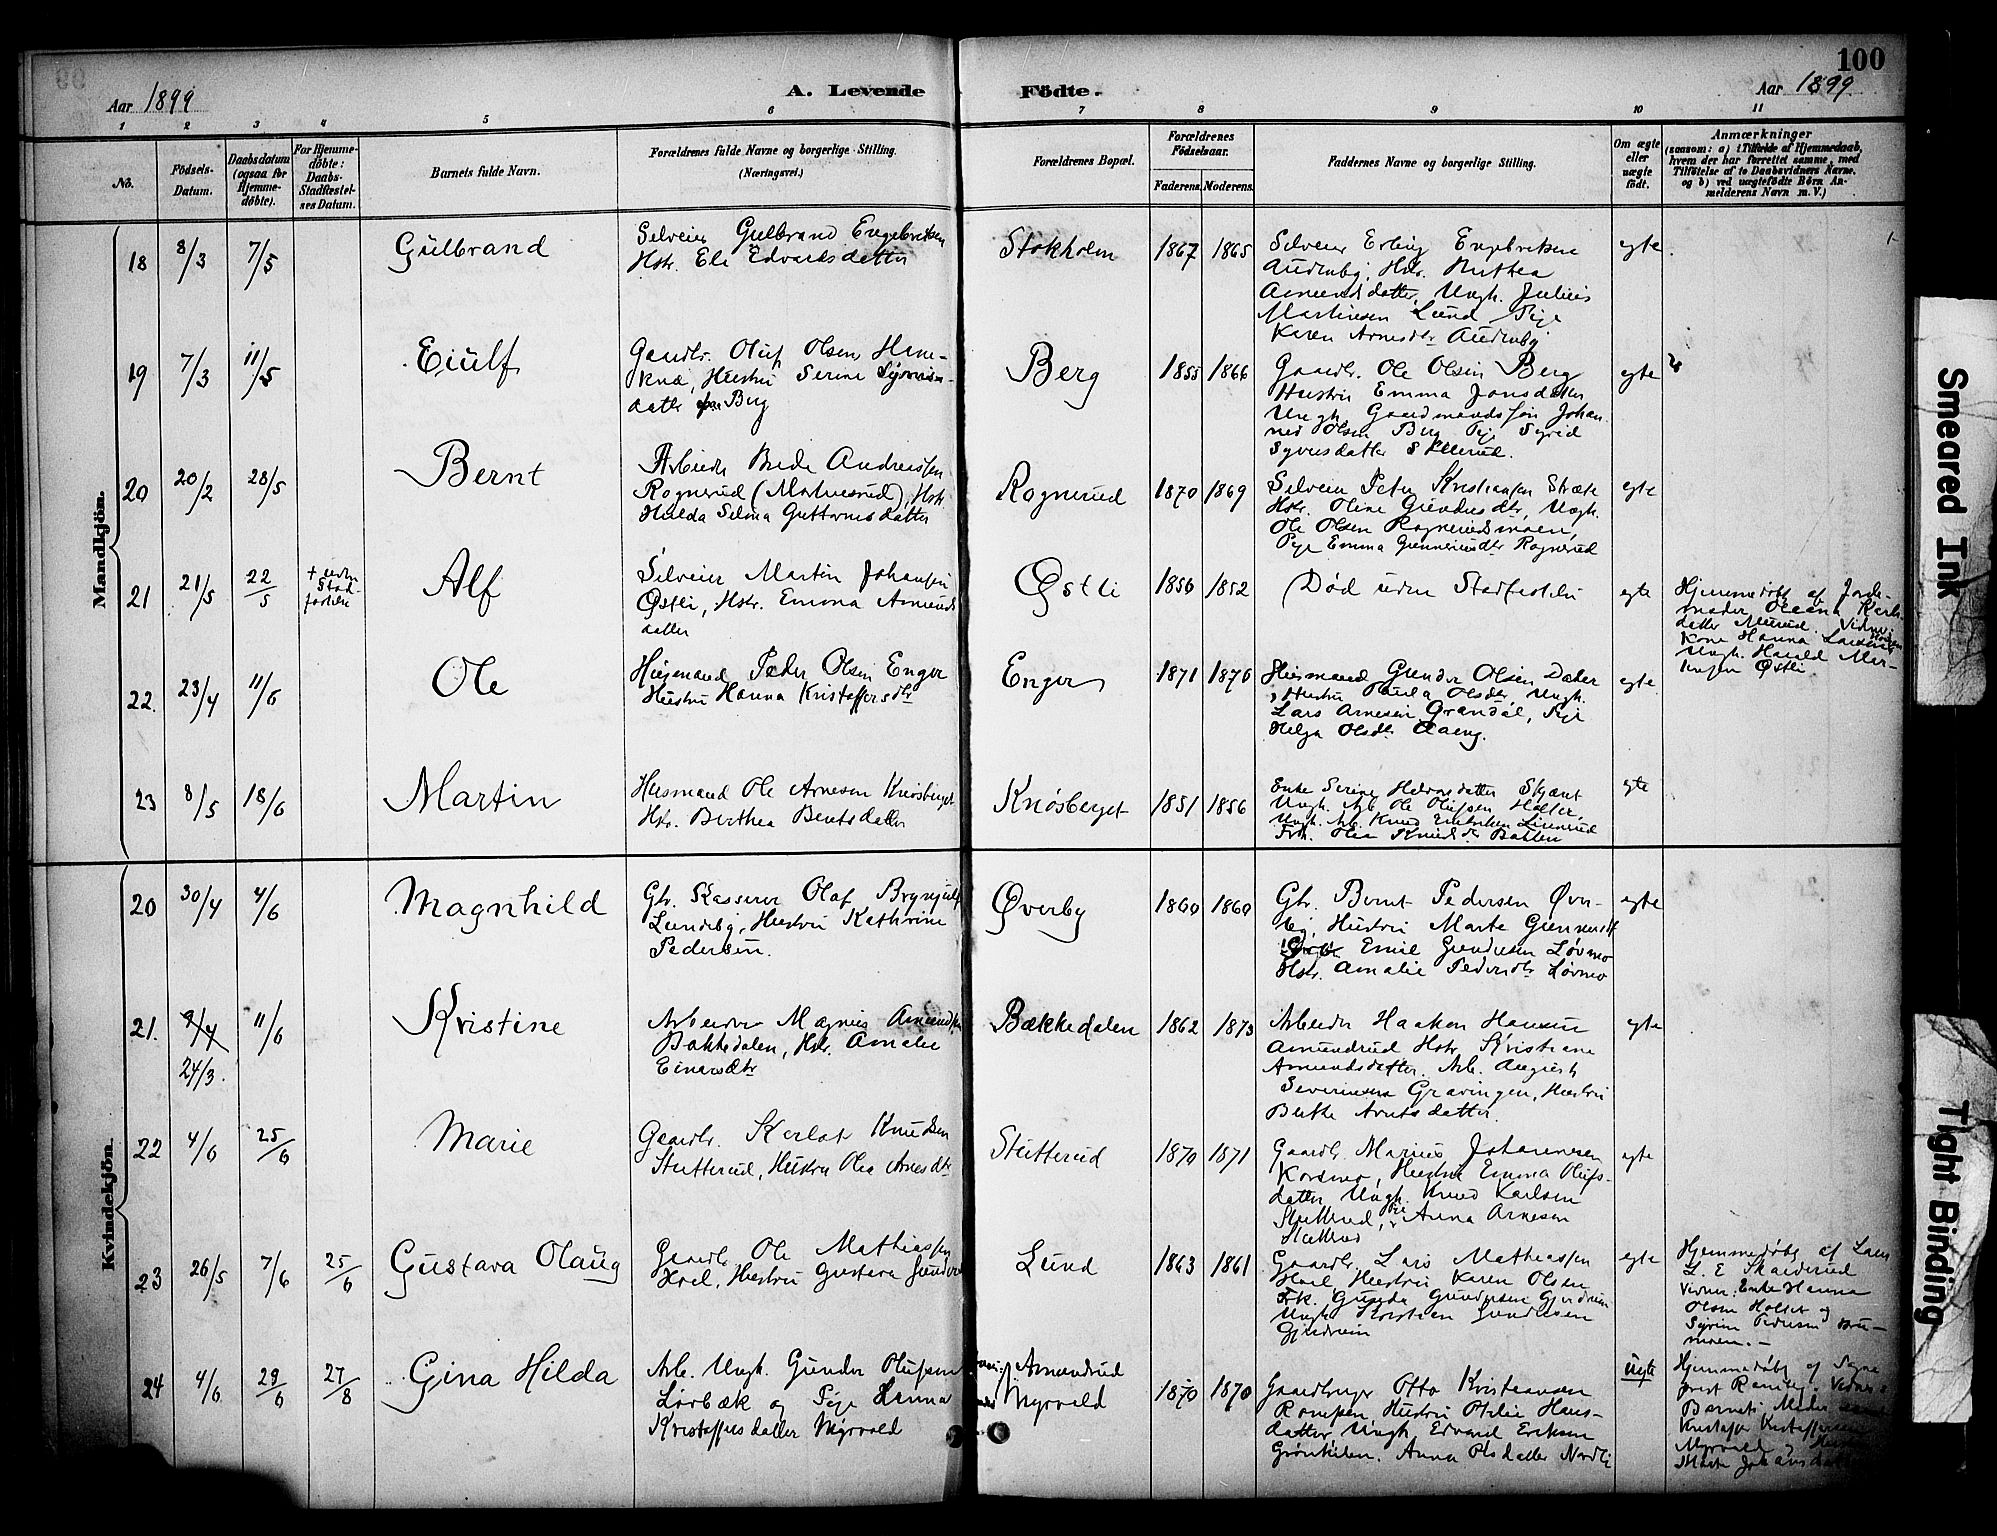 100
Aar 1899
A. Levende Födte.
Aar 1899
1 2 3 4 5 6 7 8 9 10 11
No.
Födsels-Datum.
Daabsdatum (ogsaa for Hjemme-döbte).
For Hjemme-döbte: Daabs-Stadfæstel-ses Datum.
Barnets fulde Navn.
Forældrenes fulde Navne og borgerlige Stilling.
(Næringsvei.)
Forældrenes Bopæl.
Forældrenes Födselsaar.
Faderens. Moderens.
Faddernes Navne og borgerlige Stilling.
Om ægte eller uægte födt.
Anmærkninger
(saasom: a) i Tilfælde af Hjemmedaab,
hvem der har forrettet samme, med
Tilföielse af to Daabsvidners Navne.
og b) ved uægtefödte Börn An-
melderens Navn m. V.)
Mandkjön.
18 8/3 7/5 Gulbrand
Selveier Gulbrand Engebretsen
Hstr. Eli Edvardsdatter
Stokholm 1867 1865
Selveier Erling Engebretsen
Audenby, Hstr. Berthea
Amundsdatter, Ungk. Julius
Martinsen Lund Pige
Karen Arnesdtr Audenby
egte
19 7/3 11/5 Eiulf
Gaardbr. Oluf Olsen
Hustru Serine
datter Berg
Berg 1855 1866
Gaardbr. Ole Olsen Berg
Hustru Emma Jonsdatter
Ungk. Gaardmandssøn Johan-
nes Olsen Berg Pige Sigrid
Syversdatter
egte
20 20/2 28/5 Bernt
Arbeider Brede Andreassen
Rognerud (Martinsrud), Hstr.
Hulda Selma Guttormsdatter
Rognerud 1870 1869
Selveier Peter Kristiansen Stræte
Hstr. Oline Gundersdtr, Ungk.
Ole Olsen Rognerudsmoen,
Pige Emma Gunneriusdtr Rognerud
egte
21 21/5 22/5 + uden Stad-fæstelse Alf
Selveier Martin Johansen
Østli, Hstr. Emma Amunds
datter
Østli 1850 1852
Død uden Stadfæstelse
egte
Hjemmedøbt af Jorde-
moder Oleana Karls
datter Vidner:
Kone Hanna
Ungk. Harald Mar-
tinsen Østli
22. 23/4 11/6 Ole
Husmand Peder Olsen Enger
Hustru Hanna Kristoffersdtr
Enger 1871 1876
Husmand Gunder Olsen Dæler
Hustru Paula Olsdtr Ungk.
Lars Arnesen Grandal, Pige
Helga Olsdtr Aaeng.
egte
23 8/5 18/6 Martin
Husmand Ole Arnesen Knøsberget
Hstr. Berthea Berntsdatter
Knøsberget 1851 1856
Enke Serine
Ungk. Arb. Ole Olufsen
Ungk. Arb. Knud
Frk. Olea Knudsdtr
egte
Kvindekjön.
20 30/4 4/6 Magnhild
Gbr. Kasserer Olaf Brynjulf
Lundeby, Hustru Kathrine
Pedersen.
Øverby 1860 1860
Gbr. Bernt Pedersen Øver-
by, Hustru Marte
Emil Gundersen Løvmo
Hstr. Amalie Pedersdtr Løvmo
egte
21. 9/4 11/6 Kristine
24/3.
Arbeider Magnus Amundsen
Bakkedalen, Hstr. Amalie
Einarsdtr
Bækkedalen 1862 1873
Arbeider Haakon Hansen
Amundrud Hstr. Kristiane
Amundsdatter. Arb. August
Severinsen Gravingen, Hustru
Berthe Arntsdatter.
egte
22 4/6 25/6 Marie
Gaardbr. Knudsen
Stutterud, Hustru Olea Arnesdtr
Stutterud 1870 1871
Gaardbr. Marius Johannesen
Korsmo, Hustru Emma Olufs-
datter, Ungk. Knud Karlsen
Stutterud, Pige Anna Arnesen
Stutterud
egte
23 26/5 7/6 25/6 Gustava Olaug
Gaardbr. Ole Mathiassen
Hustru Gustava
Lund 1863 1861
Gaardbr. Lars Mathiassen
Hustru Karen Olsen
Frk. Gunda Gundersen Gjerdrum
Ungk. Kristian Gundersen
Gjerdrum
egte
Hjemmedøbt af Lærer
L. E. Skarderud
Vidner: Enke Hanna
Olsen Holset og
Syrine Pedersen
24 4/6 29/6 27/8 Gina Hilda
Arb. Ungk. Gunder Olufsen
Lørbæk og Pige Lenna
Kristoffersdatter Myrvold
Amundrud
Myrvold
1870 1870
Gaardbruger Otto Kristiansen
Rompen, Hustru Otilie Hans-
datter, Ungk. Edvard Eriksen
Grønkilen. Anna Olsdatter Nordli
Uegte
Hjemmedøbt af Sogne
prest Vidner:
Barnets Moder
Kristoffer Kristoffersen
Myrvold og Hustru
Marte Johansdatter
Smeared Ink
Tight Binding